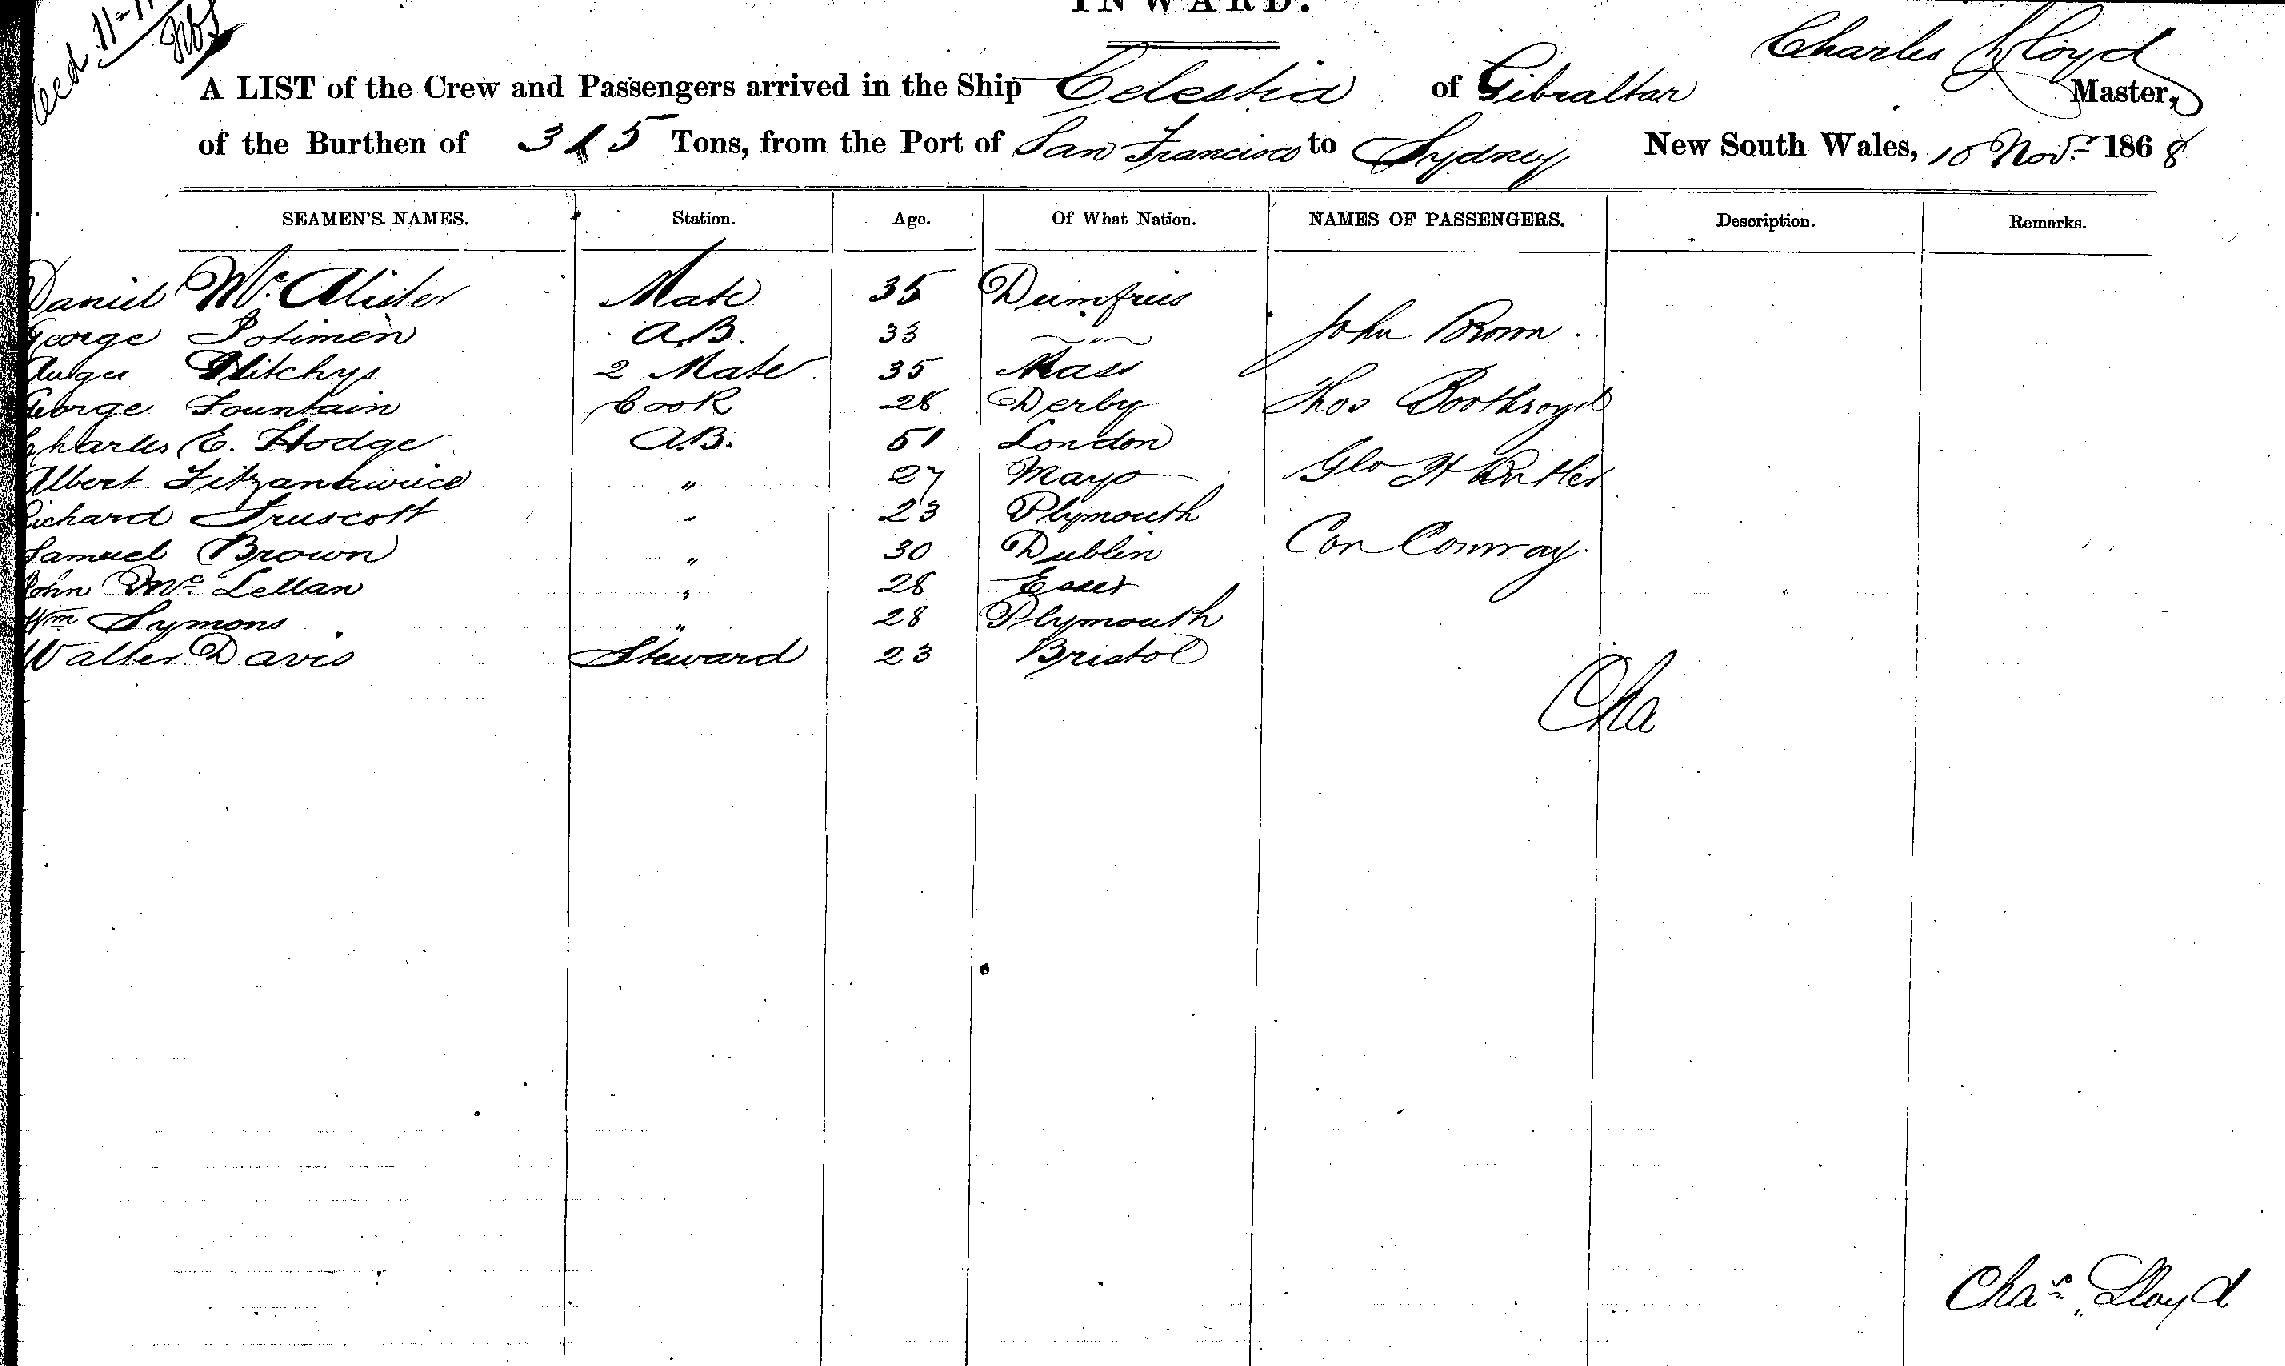 INWARD.
Charles Lloyd
A LIST of the Crew and Passengers arrived in the Ship Celestia of Gibraltar Master,
of the Burthen of 315 Tons, from the Port of San Francisco to Sydney New South Wales, 10 Novr. 1868
SEAMEN'S NAMES. Station. Age. Of What Nation. NAMES OF PASSENGERS. Description. Remarks.
Daniel Mc Alister Mate 35 Dumfries
George A.B. 33 John Brown
2 Mate 35 Mass
George Fountain Cook 28 Derby Thos Boothroyd
Charles E. Hodge A.B. 51 London
Albert " 27 Mayo Geo H Butler
Richard Truscott " 23 Plymouth
Samuel Brown " 30 Dublin Con Conway
John Mc Lellan " 28
Wm Symons " 28 Plymouth
Walter Davis Steward 23 Bristol
Cha
Chas. Lloyd